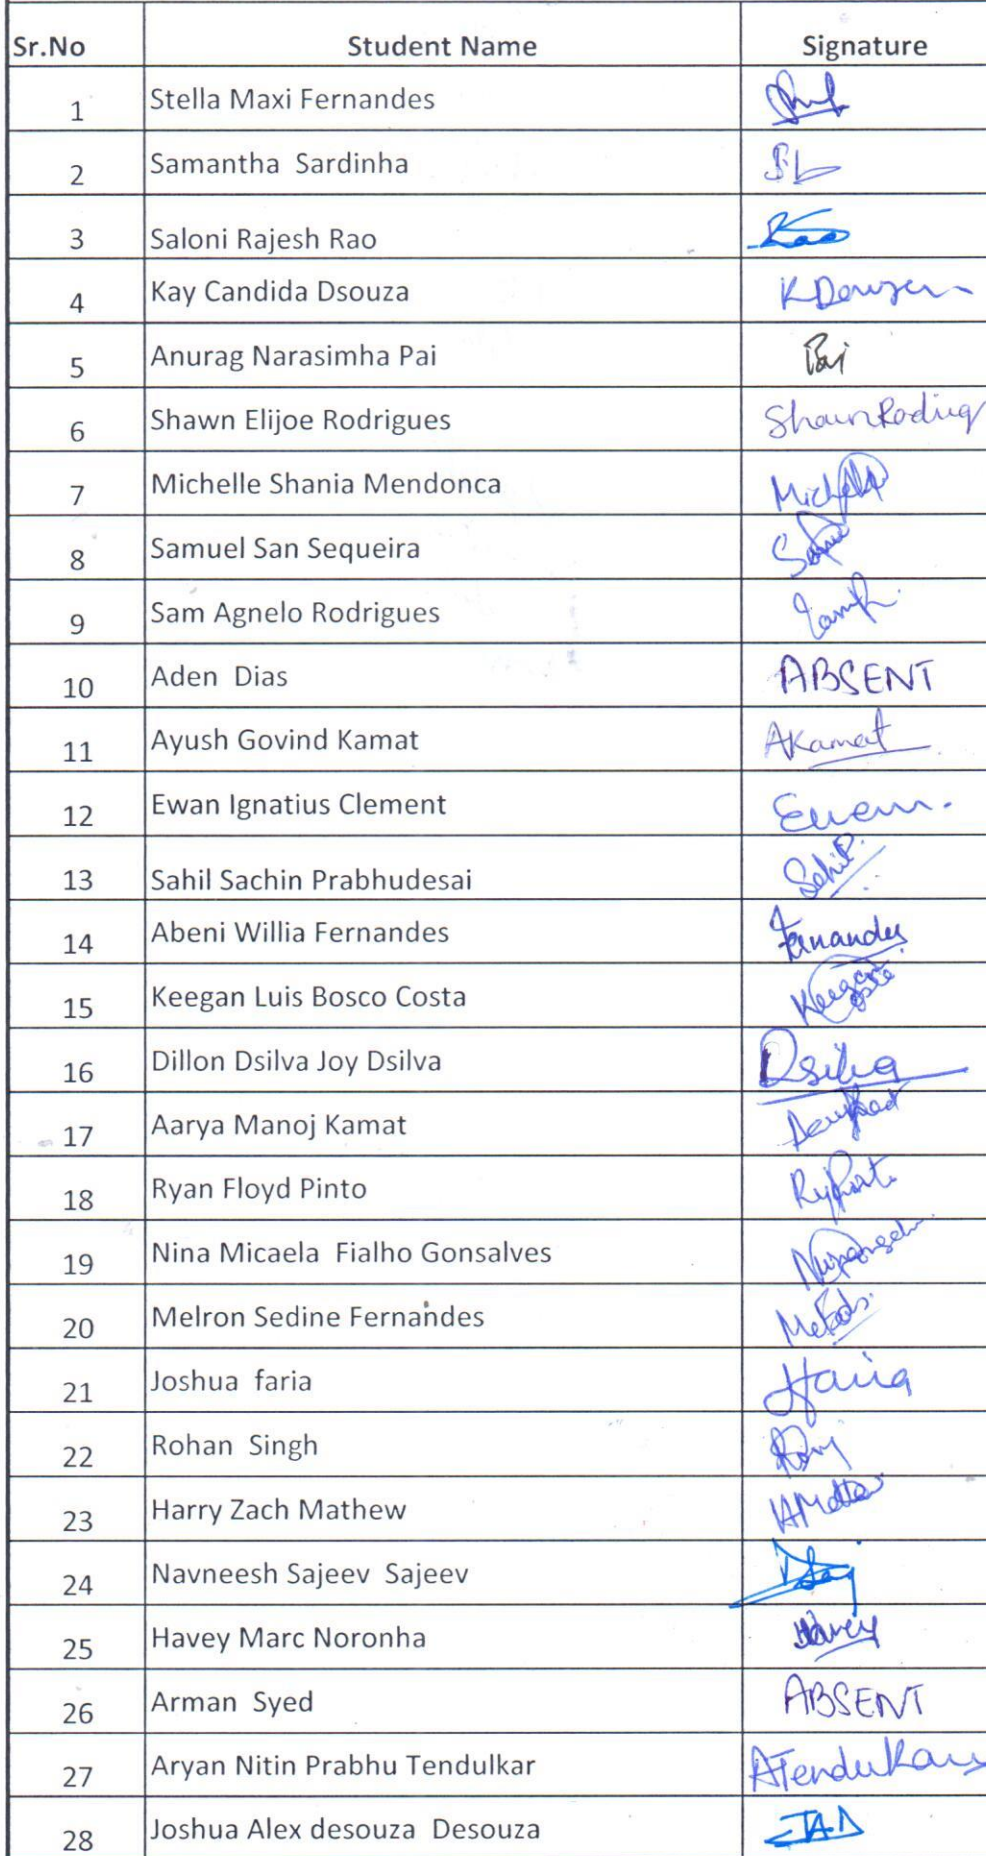 Sr.No Student Name Signature
1 Stella Maxi Fernandes
2 Samantha Sardinha
3 Saloni Rajesh Rao Rao
4 Kay Candida Dsouza
5 Anurag Narasimha Pai Pai
6 Shawn Elijoe Rodrigues
7 Michelle Shania Mendonca
8 Samuel San Sequeira
9 Sam Agnelo Rodrigues
10 Aden Dias ABSENT
11 Ayush Govind Kamat AKamat
12 Ewan Ignatius Clement
13 Sahil Sachin Prabhudesai Sahil P.
14 Abeni Willia Fernandes Fernandes
15 Keegan Luis Bosco Costa Keegan
16 Dillon Dsilva Joy Dsilva Dsilva
17 Aarya Manoj Kamat
18 Ryan Floyd Pinto
19 Nina Micaela Fialho Gonsalves
20 Melron Sedine Fernandes
21 Joshua faria
22 Rohan Singh
23 Harry Zach Mathew
24 Navneesh Sajeev Sajeev
25 Havey Marc Noronha Havey
26 Arman Syed ABSENT
27 Aryan Nitin Prabhu Tendulkar ATendulkar
28 Joshua Alex desouza Desouza JAD